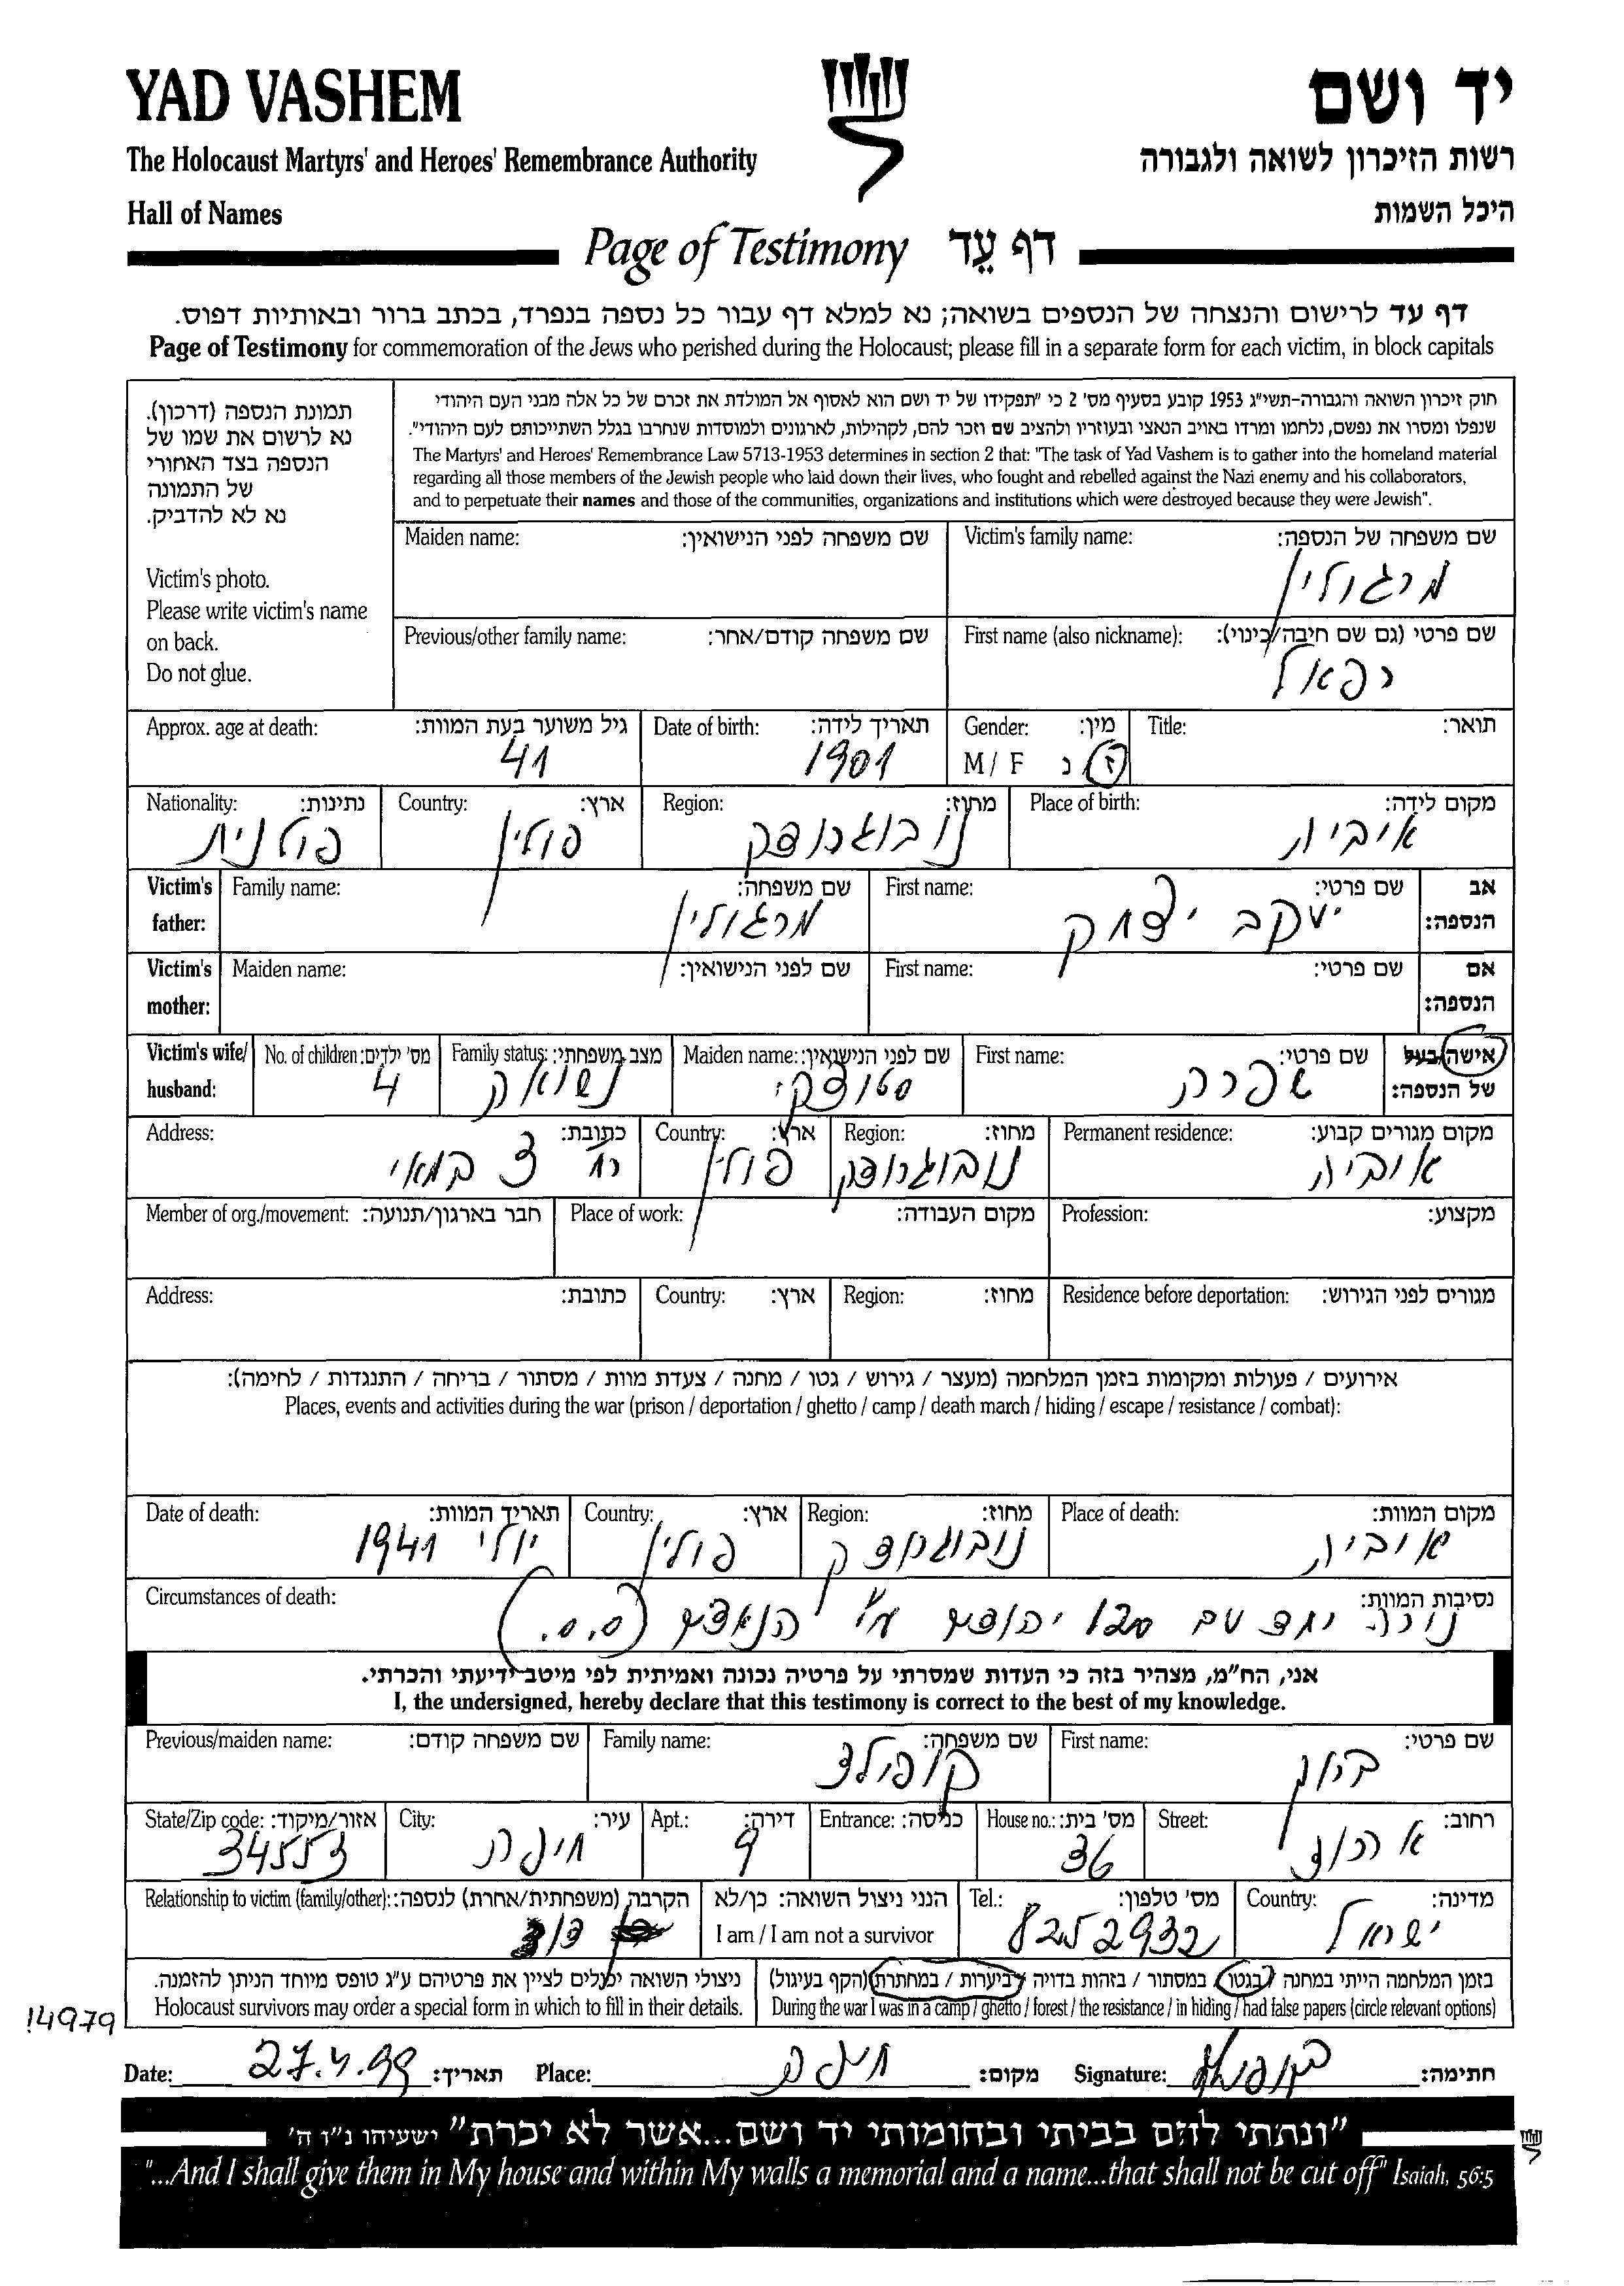 YAD VASHEM
יד ושם
The Holocaust Martyrs' and Heroes' Remembrance Authority
רשות הזיכרון לשואה ולגבורה
Hall of Names
היכל השמות
Page of Testimony דף עֵד
דף עד לרישום והנצחה של הנספים בשואה; נא למלא דף עבור כל נספה בנפרד, בכתב ברור ובאותיות דפוס.
Page of Testimony for commemoration of the Jews who perished during the Holocaust; please fill in a separate form for each victim, in block capitals
תמונת הנספה (דרכון).
נא לרשום את שמו של
הנספה בצד האחורי
של התמונה
נא לא להדביק.
Victim's photo.
Please write victim's name
on back.
Do not glue.
חוק זיכרון השואה והגבורה-תשי"ג 1953 קובע בסעיף מס' 2 כי "תפקידו של יד ושם הוא לאסוף אל המולדת את זכרם של כל אלה מבני העם היהודי
שנפלו ומסרו את נפשם, נלחמו ומרדו באויב הנאצי ובעוזריו ולהציב שם וזכר להם, לקהילות, לארגונים ולמוסדות שנחרבו בגלל השתייכותם לעם היהודי".
The Martyrs' and Heroes' Remembrance Law 5713-1953 determines in section 2 that: "The task of Yad Vashem is to gather into the homeland material
regarding all those members of the Jewish people who laid down their lives, who fought and rebelled against the Nazi enemy and his collaborators,
and to perpetuate their names and those of the communities, organizations and institutions which were destroyed because they were Jewish".
Victim's family name: שם משפחה של הנספה:
מרגולין
Maiden name: שם משפחה לפני הנישואין:
First name (also nickname): שם פרטי (גם שם חיבה/כינוי):
רפאל
Previous/other family name: שם משפחה קודם/אחר:
Title: תואר:
Gender: מין:
M / F ז/נ
Date of birth: תאריך לידה:
1901
Approx. age at death: גיל משוער בעת המוות:
41
Place of birth: מקום לידה:
איביה
Region: מחוז:
נובוגרודק
Country: ארץ:
פולין
Nationality: נתינות:
פולנית
Victim's father: אב הנספה:
First name: שם פרטי:
יעקב יצחק
Family name: שם משפחה:
מרגולין
Victim's mother: אם הנספה:
First name: שם פרטי:
Maiden name: שם לפני הנישואין:
Victim's wife/ husband: אישה/בעל של הנספה:
First name: שם פרטי:
שפרה
Maiden name: שם לפני הנישואין:
סטוצקי
Family status: מצב משפחתי:
נשואה
No. of children: מס' ילדים:
4
Permanent residence: מקום מגורים קבוע:
איביה
Region: מחוז:
נובוגרודק
Country: ארץ:
פולין
Address: כתובת:
רח' 3 במאי
Profession: מקצוע:
Place of work: מקום העבודה:
Member of org./movement: חבר בארגון/תנועה:
Residence before deportation: מגורים לפני הגירוש:
Region: מחוז:
Country: ארץ:
Address: כתובת:
אירועים / פעולות ומקומות בזמן המלחמה (מעצר / גירוש / גטו / מחנה / צעדת מוות / מסתור / בריחה / התנגדות / לחימה):
Places, events and activities during the war (prison / deportation / ghetto / camp / death march / hiding / escape / resistance / combat):
Place of death: מקום המוות:
איביה
Region: מחוז:
נובוגרודק
Country: ארץ:
פולין
Date of death: תאריך המוות:
יולי 1941
Circumstances of death: נסיבות המוות:
נורה יחד עם יהודים ע"י הנאצים (ס.ס.)
אני, הח"מ, מצהיר בזה כי העדות שמסרתי על פרטיה נכונה ואמיתית לפי מיטב ידיעתי והכרתי.
I, the undersigned, hereby declare that this testimony is correct to the best of my knowledge.
First name: שם פרטי:
ברוך
Family name: שם משפחה:
קופולד
Previous/maiden name: שם משפחה קודם:
Street: רחוב:
House no.: מס' בית:
36
Entrance: כניסה:
Apt.: דירה:
9
City: עיר:
חיפה
State/Zip code: אזור/מיקוד:
34553
Country: מדינה:
ישראל
Tel.: מס' טלפון:
8252932
הנני ניצול השואה: כן/לא
I am / I am not a survivor
Relationship to victim (family/other): הקרבה (משפחתית/אחרת) לנספה:
דוד
בזמן המלחמה הייתי במחנה / בגטו / במסתור / בזהות בדויה / ביערות / במחתרת (הקף בעיגול)
During the war I was in a camp / ghetto / forest / the resistance / in hiding / had false papers (circle relevant options)
ניצולי השואה יכולים לציין את פרטיהם ע"ג טופס מיוחד הניתן להזמנה.
Holocaust survivors may order a special form in which to fill in their details.
14979
Date: 27.4.99 תאריך: Place: חיפה מקום: Signature: חתימה:
"ונתתי להם בביתי ובחומותי יד ושם...אשר לא יכרת" ישעיהו נ"ו ה'
"...And I shall give them in My house and within My walls a memorial and a name...that shall not be cut off" Isaiah, 56:5